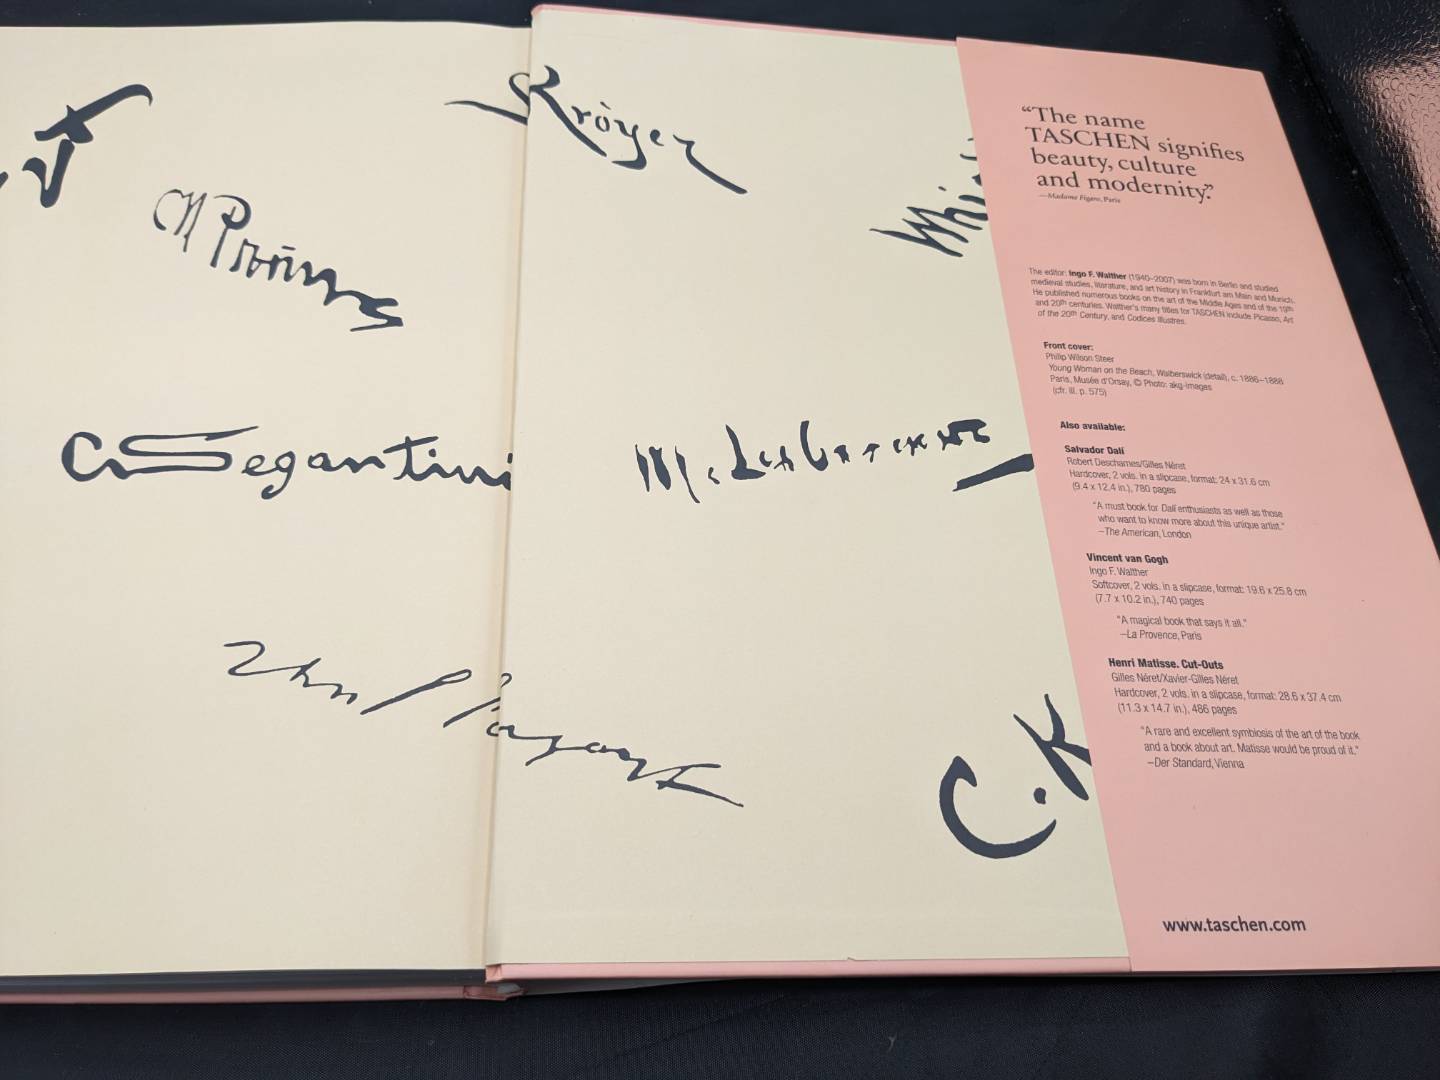 Kröyer
G Segantini
C.K
"The name
TASCHEN signifies
beauty, culture
and modernity."
—Madame Figaro, Paris
The editor: Ingo F. Walther (1940–2007) was born in Berlin and studied
medieval studies, literature, and art history in Frankfurt am Main and Munich.
He published numerous books on the art of the Middle Ages and of the 19th
and 20th centuries. Walther's many titles for TASCHEN include Picasso, Art
of the 20th Century, and Codices Illustres.
Front cover:
Philip Wilson Steer
Young Woman on the Beach, Walberswick (detail), c. 1886–1888
Paris, Musée d'Orsay, © Photo: akg-images
(cfr. ill. p. 575)
Also available:
Salvador Dalí
Robert Descharnes/Gilles Néret
Hardcover, 2 vols. in a slipcase, format: 24 x 31.6 cm
(9.4 x 12.4 in.), 780 pages
"A must book for Dalí enthusiasts as well as those
who want to know more about this unique artist."
—The American, London
Vincent van Gogh
Ingo F. Walther
Softcover, 2 vols. in a slipcase, format: 19.6 x 25.8 cm
(7.7 x 10.2 in.), 740 pages
"A magical book that says it all."
—La Provence, Paris
Henri Matisse. Cut-Outs
Gilles Néret/Xavier-Gilles Néret
Hardcover, 2 vols. in a slipcase, format: 28.6 x 37.4 cm
(11.3 x 14.7 in.), 486 pages
"A rare and excellent symbiosis of the art of the book
and a book about art. Matisse would be proud of it."
—Der Standard, Vienna
www.taschen.com